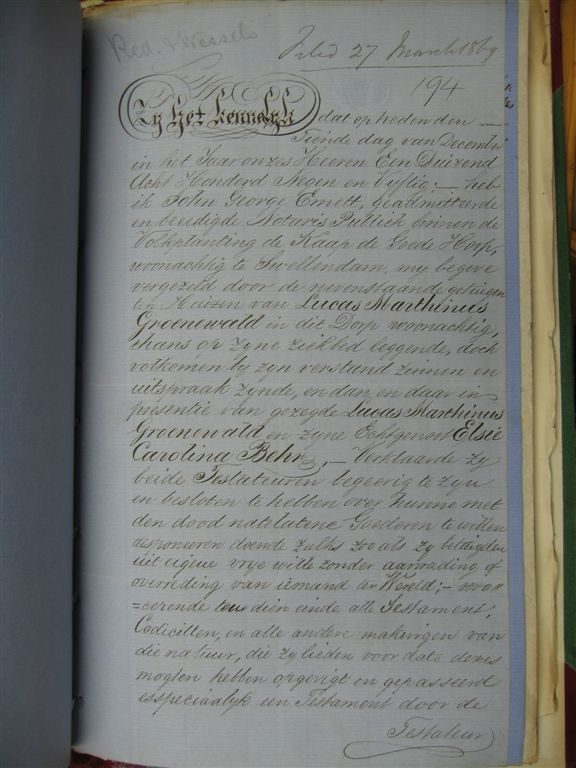 Red. & Wessels
Filed 27 March 1869
194
Zy het kennelyk dat op heden den
Tiende dag van December
in het Jaar onzes Heeren Een Duizend
Acht Honderd Negen en Vyftig; heb
ik John George Emett, geadmitteerde
en beedigde Notaris Publiek binnen de
Volkplanting de Kaap de Goede Hoop,
woonachtig te Swellendam, my begeve
vergezeld door de nevenstaande getuigen
ten Huizen van Lucas Marthinus
Groenewald in dit Dorp woonachtig,
thans op zyne ziekbed leggende, doch
volkomen by zyn verstand zinnen en
uitspraak zynde, en dan en daar in
presentie van gezegde Lucas Marthinus
Groenewald en zyne Echtgenoot Elsie
Carolina Behn, Verklaarde zy
beide Testateuren begeerig te zyn
en besloten te hebben over hunne met
den dood natelatene Goederen te willen
disponeren doende zulks zoo als zy betuigden
uit eigene vrye wille zonder aanrading of
overreding van iemand ter Wereld; revo=
=cerende ten dien einde alle Testament,
Codicillen, en alle andere makingen van
die natuur, die zy lieden voor dato dezes
mogten hebben opgerigt en gepasseerd
esspeciaalyk een Testament door de
Testateur